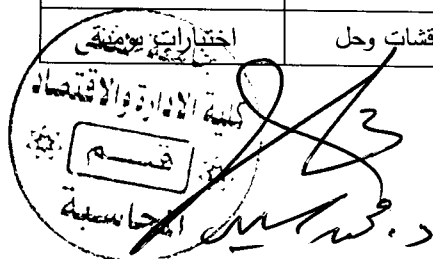 قشات وحل
اختبارات يومية
كلية الادارة والاقتصاد
قسم
المحاسبة
د. محمد